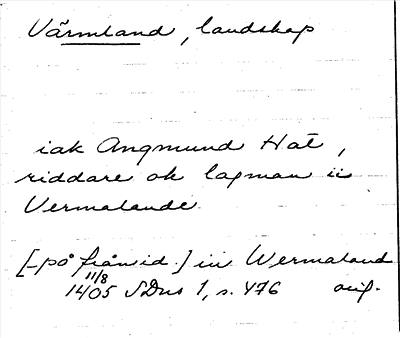 Värmland, landskap
iak Angmund Hat,
riddare ok lagman ii
Vermalande
[-på frånsid.] in Wermaland
11/8
1405 SDns 1, s. 476 orig.